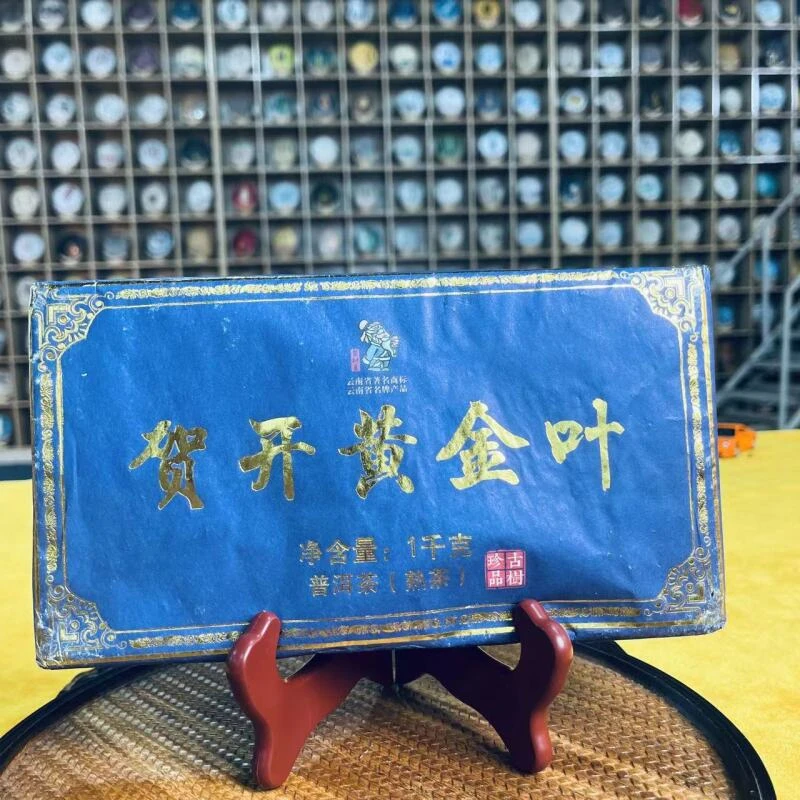 云南省著名商标
云南省名牌产品
贺开黄金叶
净含量：1千克
普洱茶（熟茶）
古樹
珍品